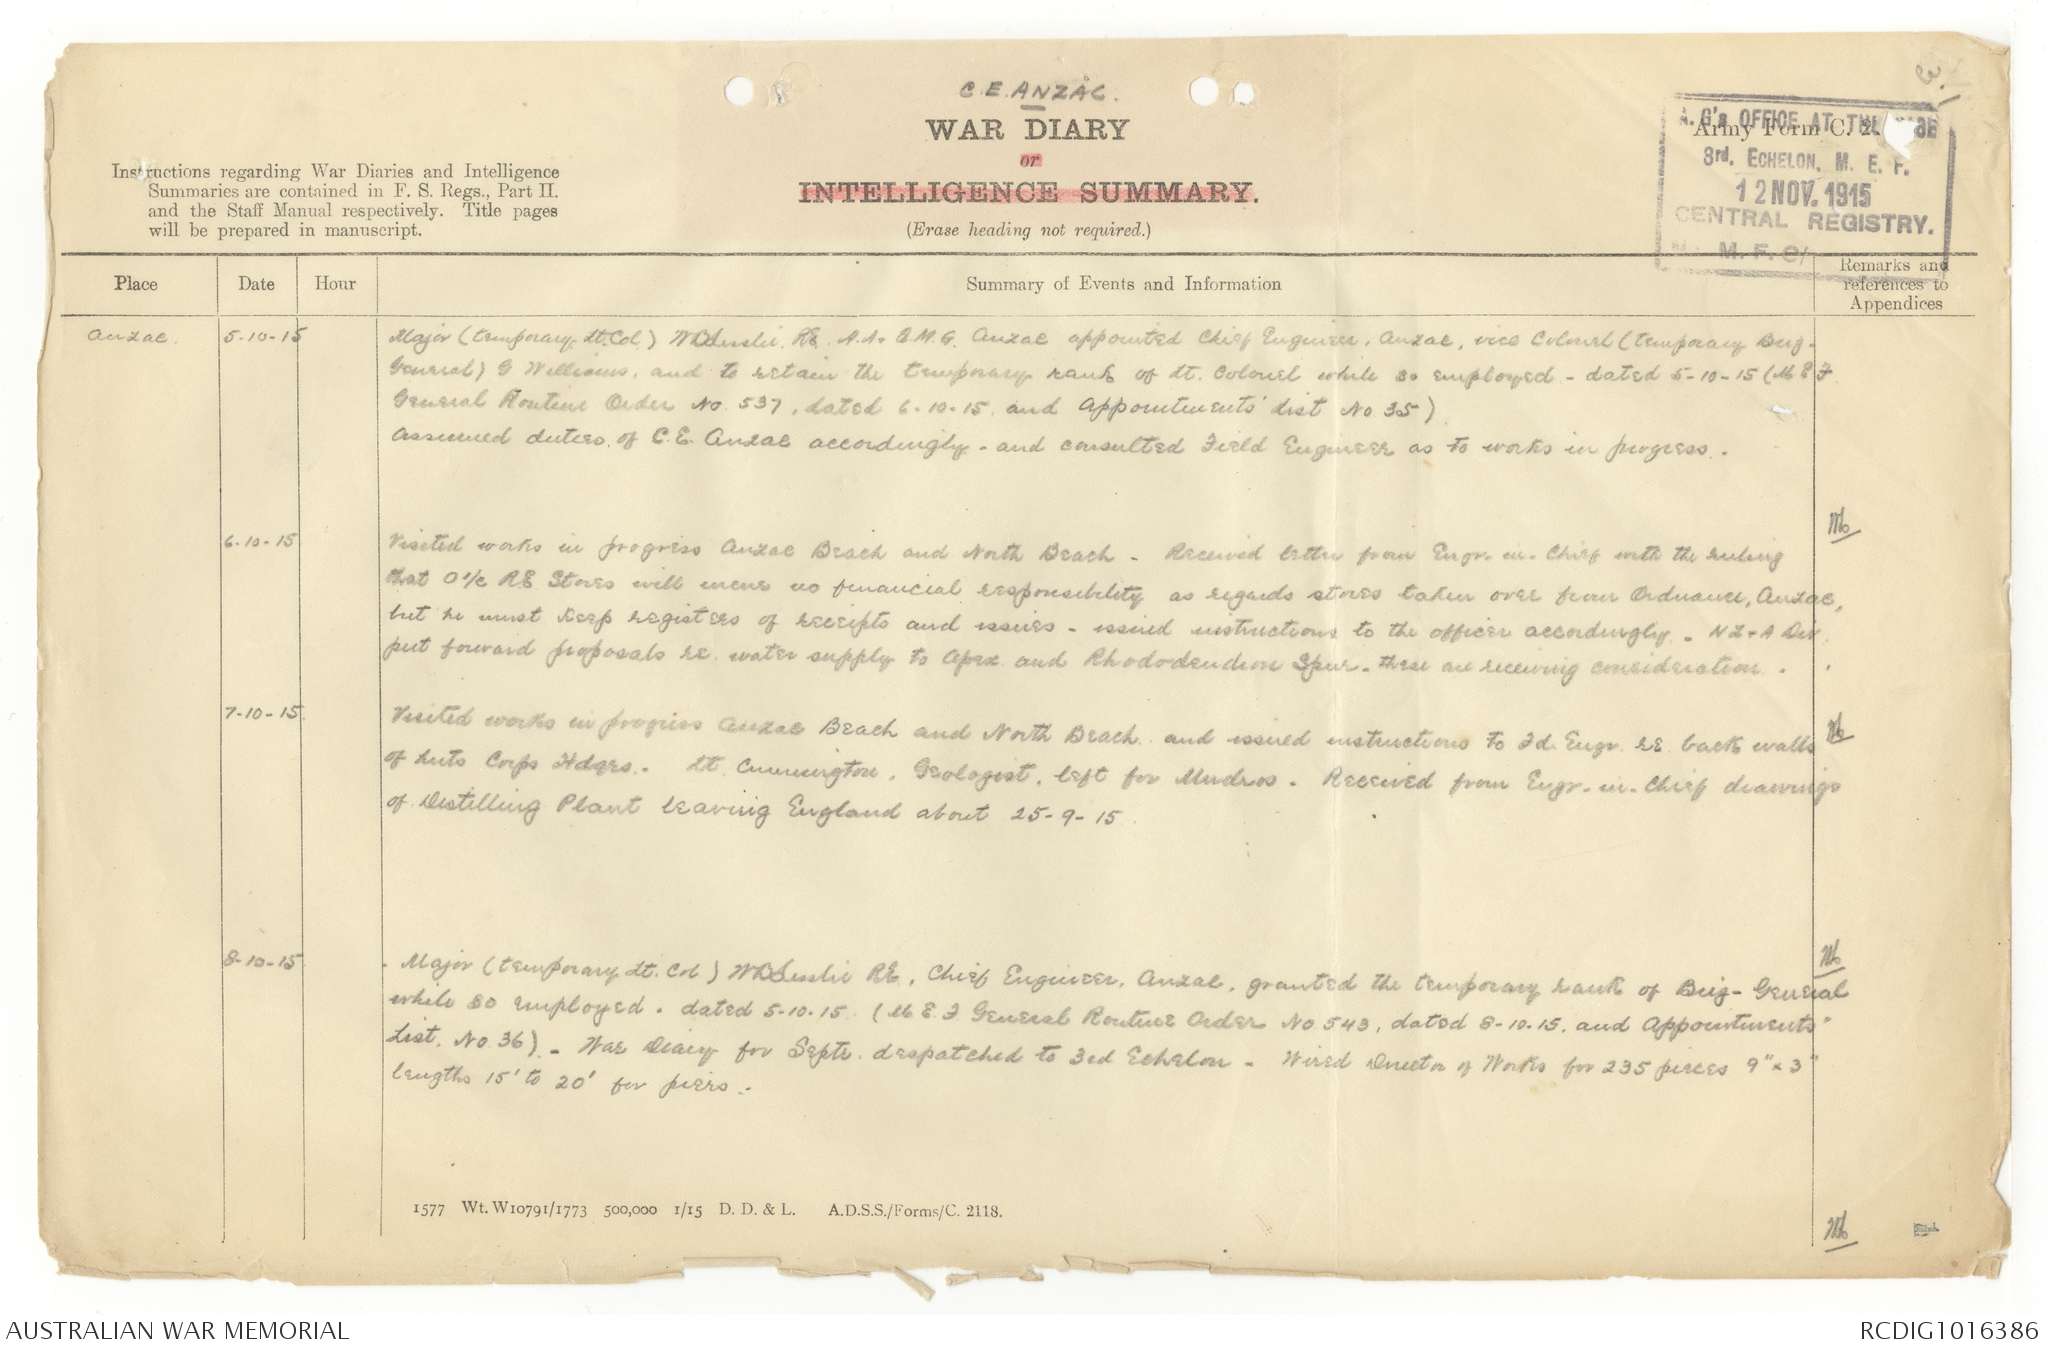 C.E. ANZAC.
WAR DIARY
or
INTELLIGENCE SUMMARY.
(Erase heading not required.)
Instructions regarding War Diaries and Intelligence
Summaries are contained in F. S. Regs., Part II.
and the Staff Manual respectively. Title pages
will be prepared in manuscript.
Army Form C. 2
A.G's OFFICE AT THE BASE
3rd. ECHELON, M. E. F.
12 NOV. 1915
CENTRAL REGISTRY.
Place
Date
Hour
Summary of Events and Information
Remarks and
references to
Appendices
Anzac.
5-10-15
Major (temporary Lt. Col.) W B Lesslie. RE. A.A. & Q.M.G. Anzac appointed Chief Engineer, Anzac, vice Colonel (temporary Brig-
General) G Williams, and to retain the temporary rank of Lt. Colonel while so employed - dated 5-10-15 (M E F
General Routine Order No. 537, dated 6-10-15. and Appointments' List No 35)
Assumed duties of C.E. Anzac accordingly - and consulted Field Engineer as to works in progress.
6-10-15
Visited works in progress Anzac Beach and North Beach - Received letter from Engr-in-Chief with the ruling
that O i/c RE Stores will incur no financial responsibility as regards stores taken over from Ordnance, Anzac,
but he must keep registers of receipts and issues - issued instructions to the officer accordingly - NZ & A Div.
put forward proposals re. water supply to Apex and Rhododendron Spur - these are receiving consideration.
7-10-15
Visited works in progress Anzac Beach and North Beach and issued instructions to Fd. Engr. re back walls
of huts Corps Hdqrs. Lt. Cunnington, Geologist, left for Mudros. Received from Engr-in-Chief drawings
of Distilling Plant leaving England about 25-9-15.
8-10-15
Major (temporary Lt. Col) W B Lesslie RE, Chief Engineer, Anzac, granted the temporary rank of Brig-General
while so employed. dated 5-10-15. (M E F General Routine Order No 543, dated 8-10-15, and Appointments'
List. No 36). - War Diary for Septr. despatched to 3rd Echelon - Wired Director of Works for 235 pieces 9" x 3"
lengths 15' to 20' for piers.
1577 Wt. W10791/1773 500,000 1/15 D. D. & L. A.D.S.S./Forms/C. 2118.
AUSTRALIAN WAR MEMORIAL
RCDIG1016386